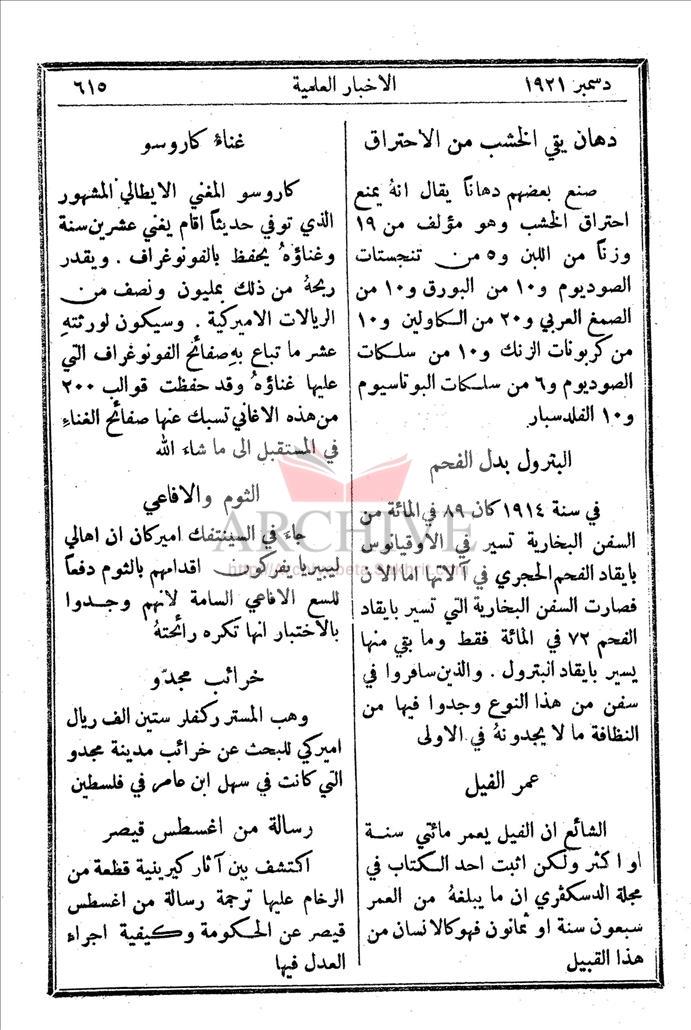 دسمبر ١٩٢١
الاخبار العلمية
٦١٥
دهان يقي الخشب من الاحتراق
صنع بعضهم دهاناً يقال انهُ يمنع
احتراق الخشب وهو مؤلف من ١٩
وزناً من اللبن و٥ من تنجستات
الصوديوم و١٠ من البورق و١٠ من
الصمغ العربي و٢٠ من الكاولين و١٠
من كربونات الزنك و١٠ من سلكات
الصوديوم و٦ من سلكات البوتاسيوم
و١٠ الفلدسبار
البترول بدل الفحم
في سنة ١٩١٤ كان ٨٩ في المائة من
السفن البخارية تسير في الاوقيانوس
بايقاد الفحم الحجري في آلاتها اما الآن
فصارت السفن البخارية التي تسير بايقاد
الفحم ٧٢ في المائة فقط وما بقي منها
يسير بايقاد البترول . والذين سافروا في
سفن من هذا النوع وجدوا فيها من
النظافة ما لا يجدونهُ في الاولى
عمر الفيل
الشائع ان الفيل يعمر مائتي سنة
او اكثر ولكن اثبت احد الكتاب في
مجلة الدسكڤري ان ما يبلغهُ من العمر
سبعون سنة او ثمانون فهو كالانسان من
هذا القبيل
غناءُ كاروسو
كاروسو المغني الايطالي المشهور
الذي توفي حديثاً اقام يغني عشرين سنة
وغناؤهُ يحفظ بالفونوغراف . ويقدر
ربحهُ من ذلك بمليون ونصف من
الريالات الاميركية . وسيكون لورثتهِ
عشر ما تباع بهِ صفائح الفونوغراف التي
عليها غناؤهُ وقد حفظت قوالب ٢٠٠
من هذه الاغاني تسبك عنها صفائح الغناءِ
في المستقبل الى ما شاء الله
الثوم والافاعي
جاءَ في السينتفك اميركان ان اهالي
ليبيريا يفركون اقدامهم بالثوم دفعاً
للسع الافاعي السامة لانهم وجدوا
بالاختبار انها تكره رائحتهُ
خرائب مجدّو
وهب المستر ركفلر ستين الف ريال
اميركي للبحث عن خرائب مدينة مجدو
التي كانت في سهل ابن عامر في فلسطين
رسالة من اغسطس قيصر
اكتشف بين آثار كيرينية قطعة من
الرخام عليها ترجمة رسالة من اغسطس
قيصر عن الحكومة وكيفية اجراء
العدل فيها
ARCHIVE